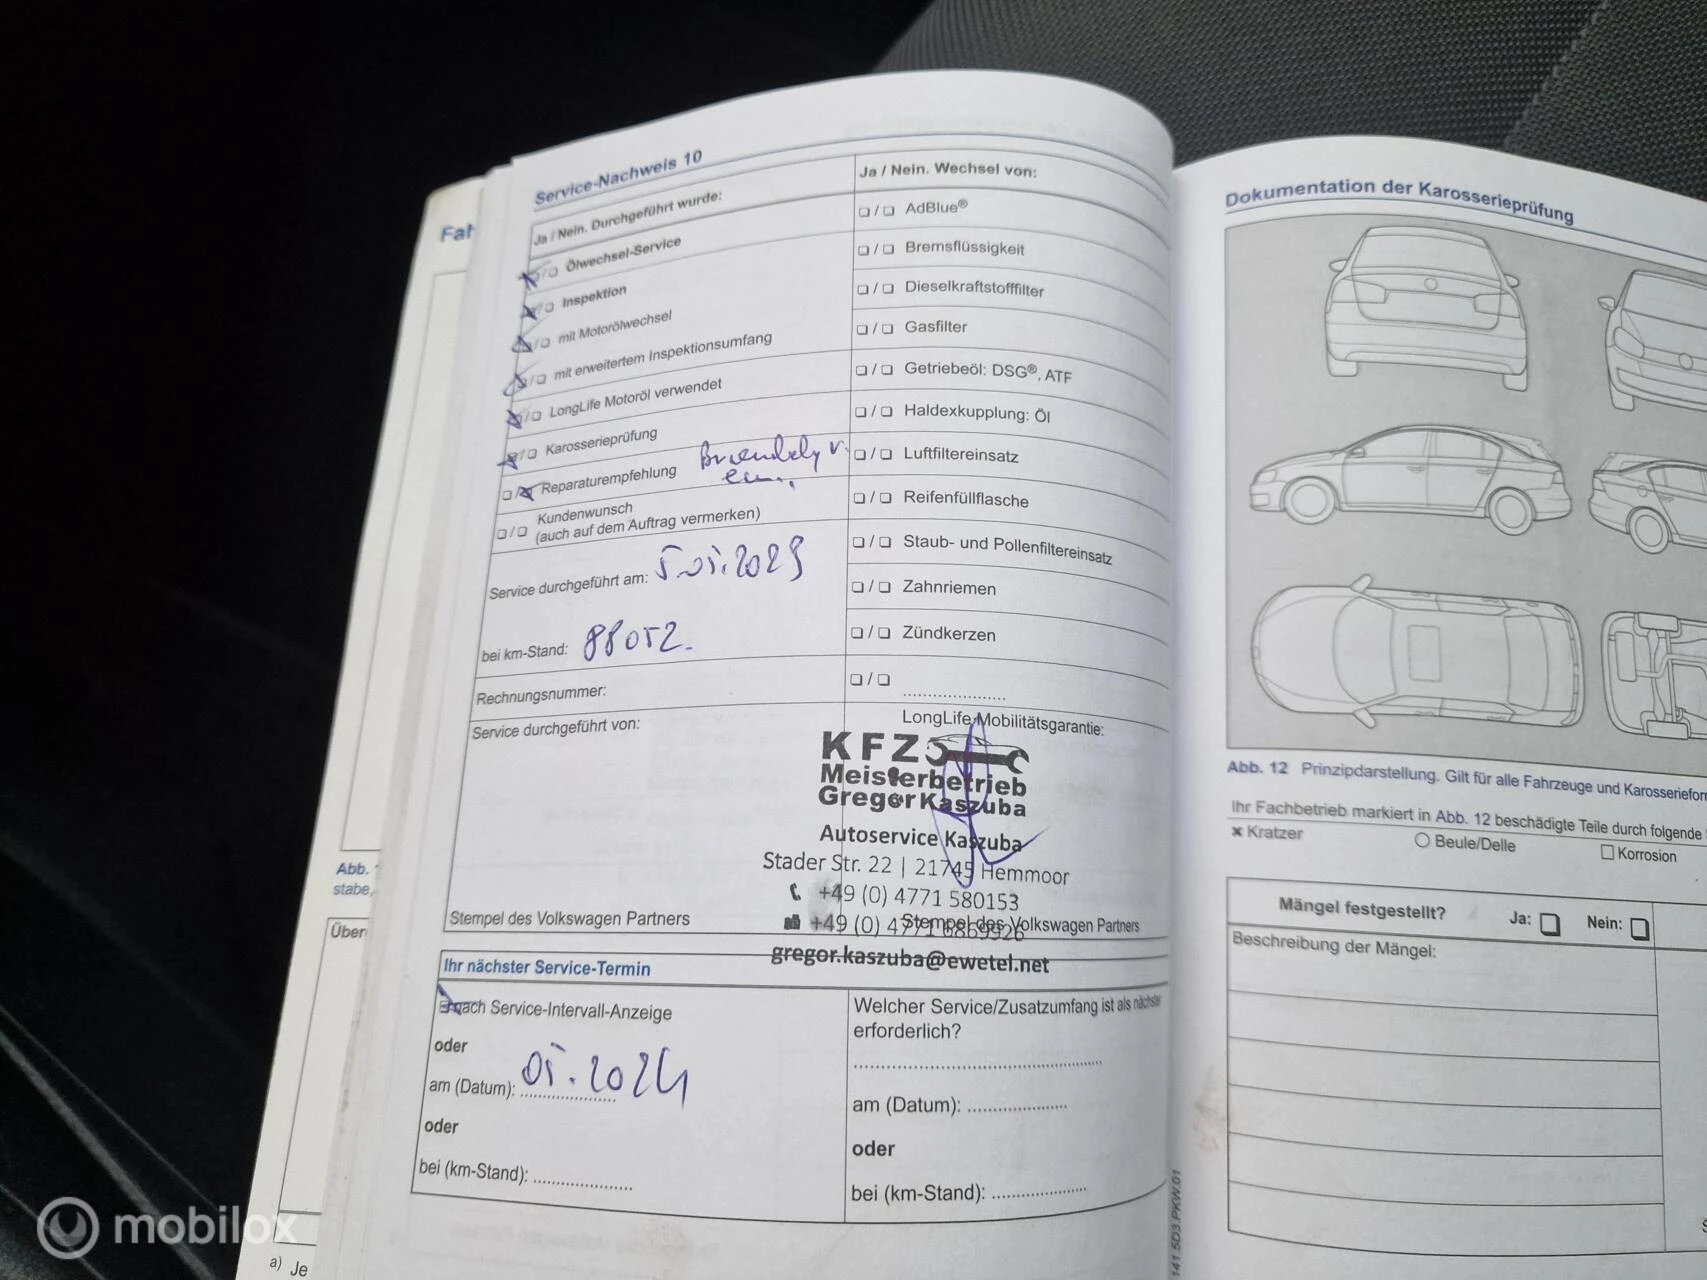 Service-Nachweis 10
Ja / Nein. Durchgeführt wurde:
Ölwechsel-Service
Inspektion
mit Motorölwechsel
mit erweitertem Inspektionsumfang
LongLife Motoröl verwendet
Karosserieprüfung
Reparaturempfehlung
Kundenwunsch
(auch auf dem Auftrag vermerken)
Service durchgeführt am: 5.05.2023
bei km-Stand: 88052.
Rechnungsnummer:
Service durchgeführt von:
Stempel des Volkswagen Partners
Ja / Nein. Wechsel von:
AdBlue®
Bremsflüssigkeit
Dieselkraftstofffilter
Gasfilter
Getriebeöl: DSG®, ATF
Haldexkupplung: Öl
Luftfiltereinsatz
Reifenfüllflasche
Staub- und Pollenfiltereinsatz
Zahnriemen
Zündkerzen
LongLife Mobilitätsgarantie:
KFZ
Meisterbetrieb
Gregor Kaszuba
Autoservice Kaszuba
Stader Str. 22 | 21745 Hemmoor
+49 (0) 4771 580153
+49 (0) 4771 6869926
Stempel des Volkswagen Partners
gregor.kaszuba@ewetel.net
Ihr nächster Service-Termin
nach Service-Intervall-Anzeige
oder
am (Datum): 05.2024
oder
bei (km-Stand):
Welcher Service/Zusatzumfang ist als nächster
erforderlich?
am (Datum):
oder
bei (km-Stand):
141.5D3.PKW.01
Dokumentation der Karosserieprüfung
Abb. 12 Prinzipdarstellung. Gilt für alle Fahrzeuge und
Ihr Fachbetrieb markiert in Abb. 12 beschädigte Teile durch folgende
Kratzer
Beule/Delle
Korrosion
Mängel festgestellt? Ja: Nein:
Beschreibung der Mängel:
Abb.
a) Je
mobilox